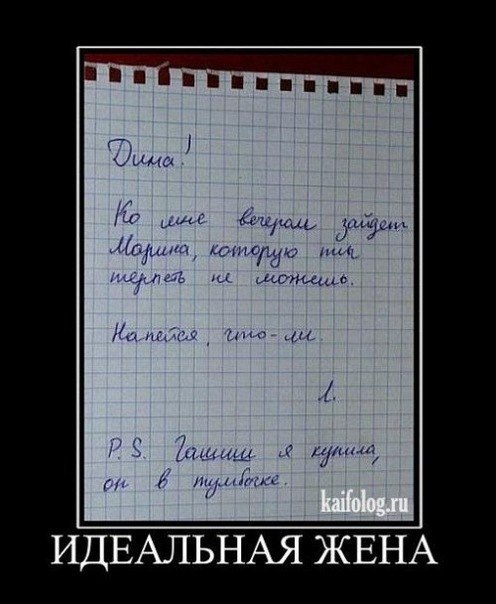 Дима!
Ко мне вечером зайдет
Марина, которую ты
терпеть не можешь.
Напейся, что-ли.
Л.
P.S. Гашиш я купила,
он в тумбочке.
kaifolog.ru
ИДЕАЛЬНАЯ ЖЕНА